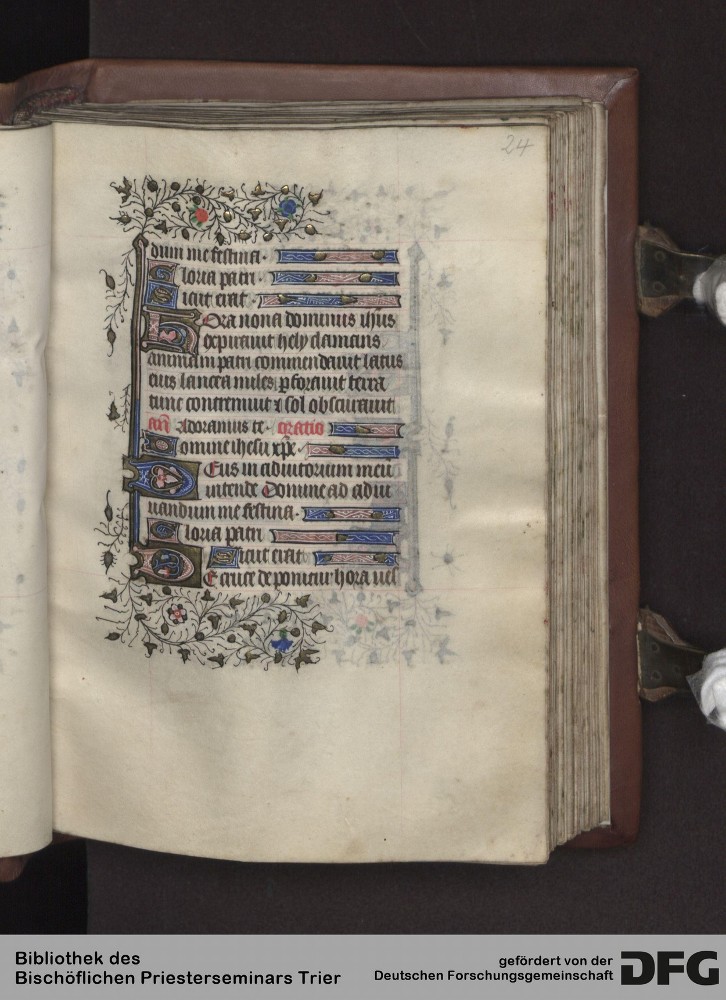 24
dum me festina.
Gloria patri.
Sicut erat
Hora nona dominus ihūs
expirauit hely clamans
animam patri commendauit latus
eius lancea miles pforauit terra
tunc contremuit ⁊ sol obscurauit
añ Adoramus te. oratio
Domine ihesu xp̄e.
Deus in adiutorium meū
intende Domine ad adiu
uandum me festina.
Gloria patri
Sicut erat
De cruce deponitur hora ues
Bibliothek des
Bischöflichen Priesterseminars Trier
gefördert von der
Deutschen Forschungsgemeinschaft
DFG